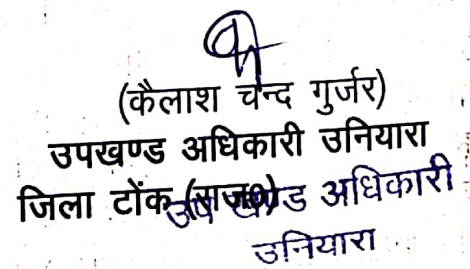 (कैलाश चन्द गुर्जर)
उपखण्ड अधिकारी उनियारा
जिला टोंक (राज०)
उप खण्ड अधिकारी
उनियारा